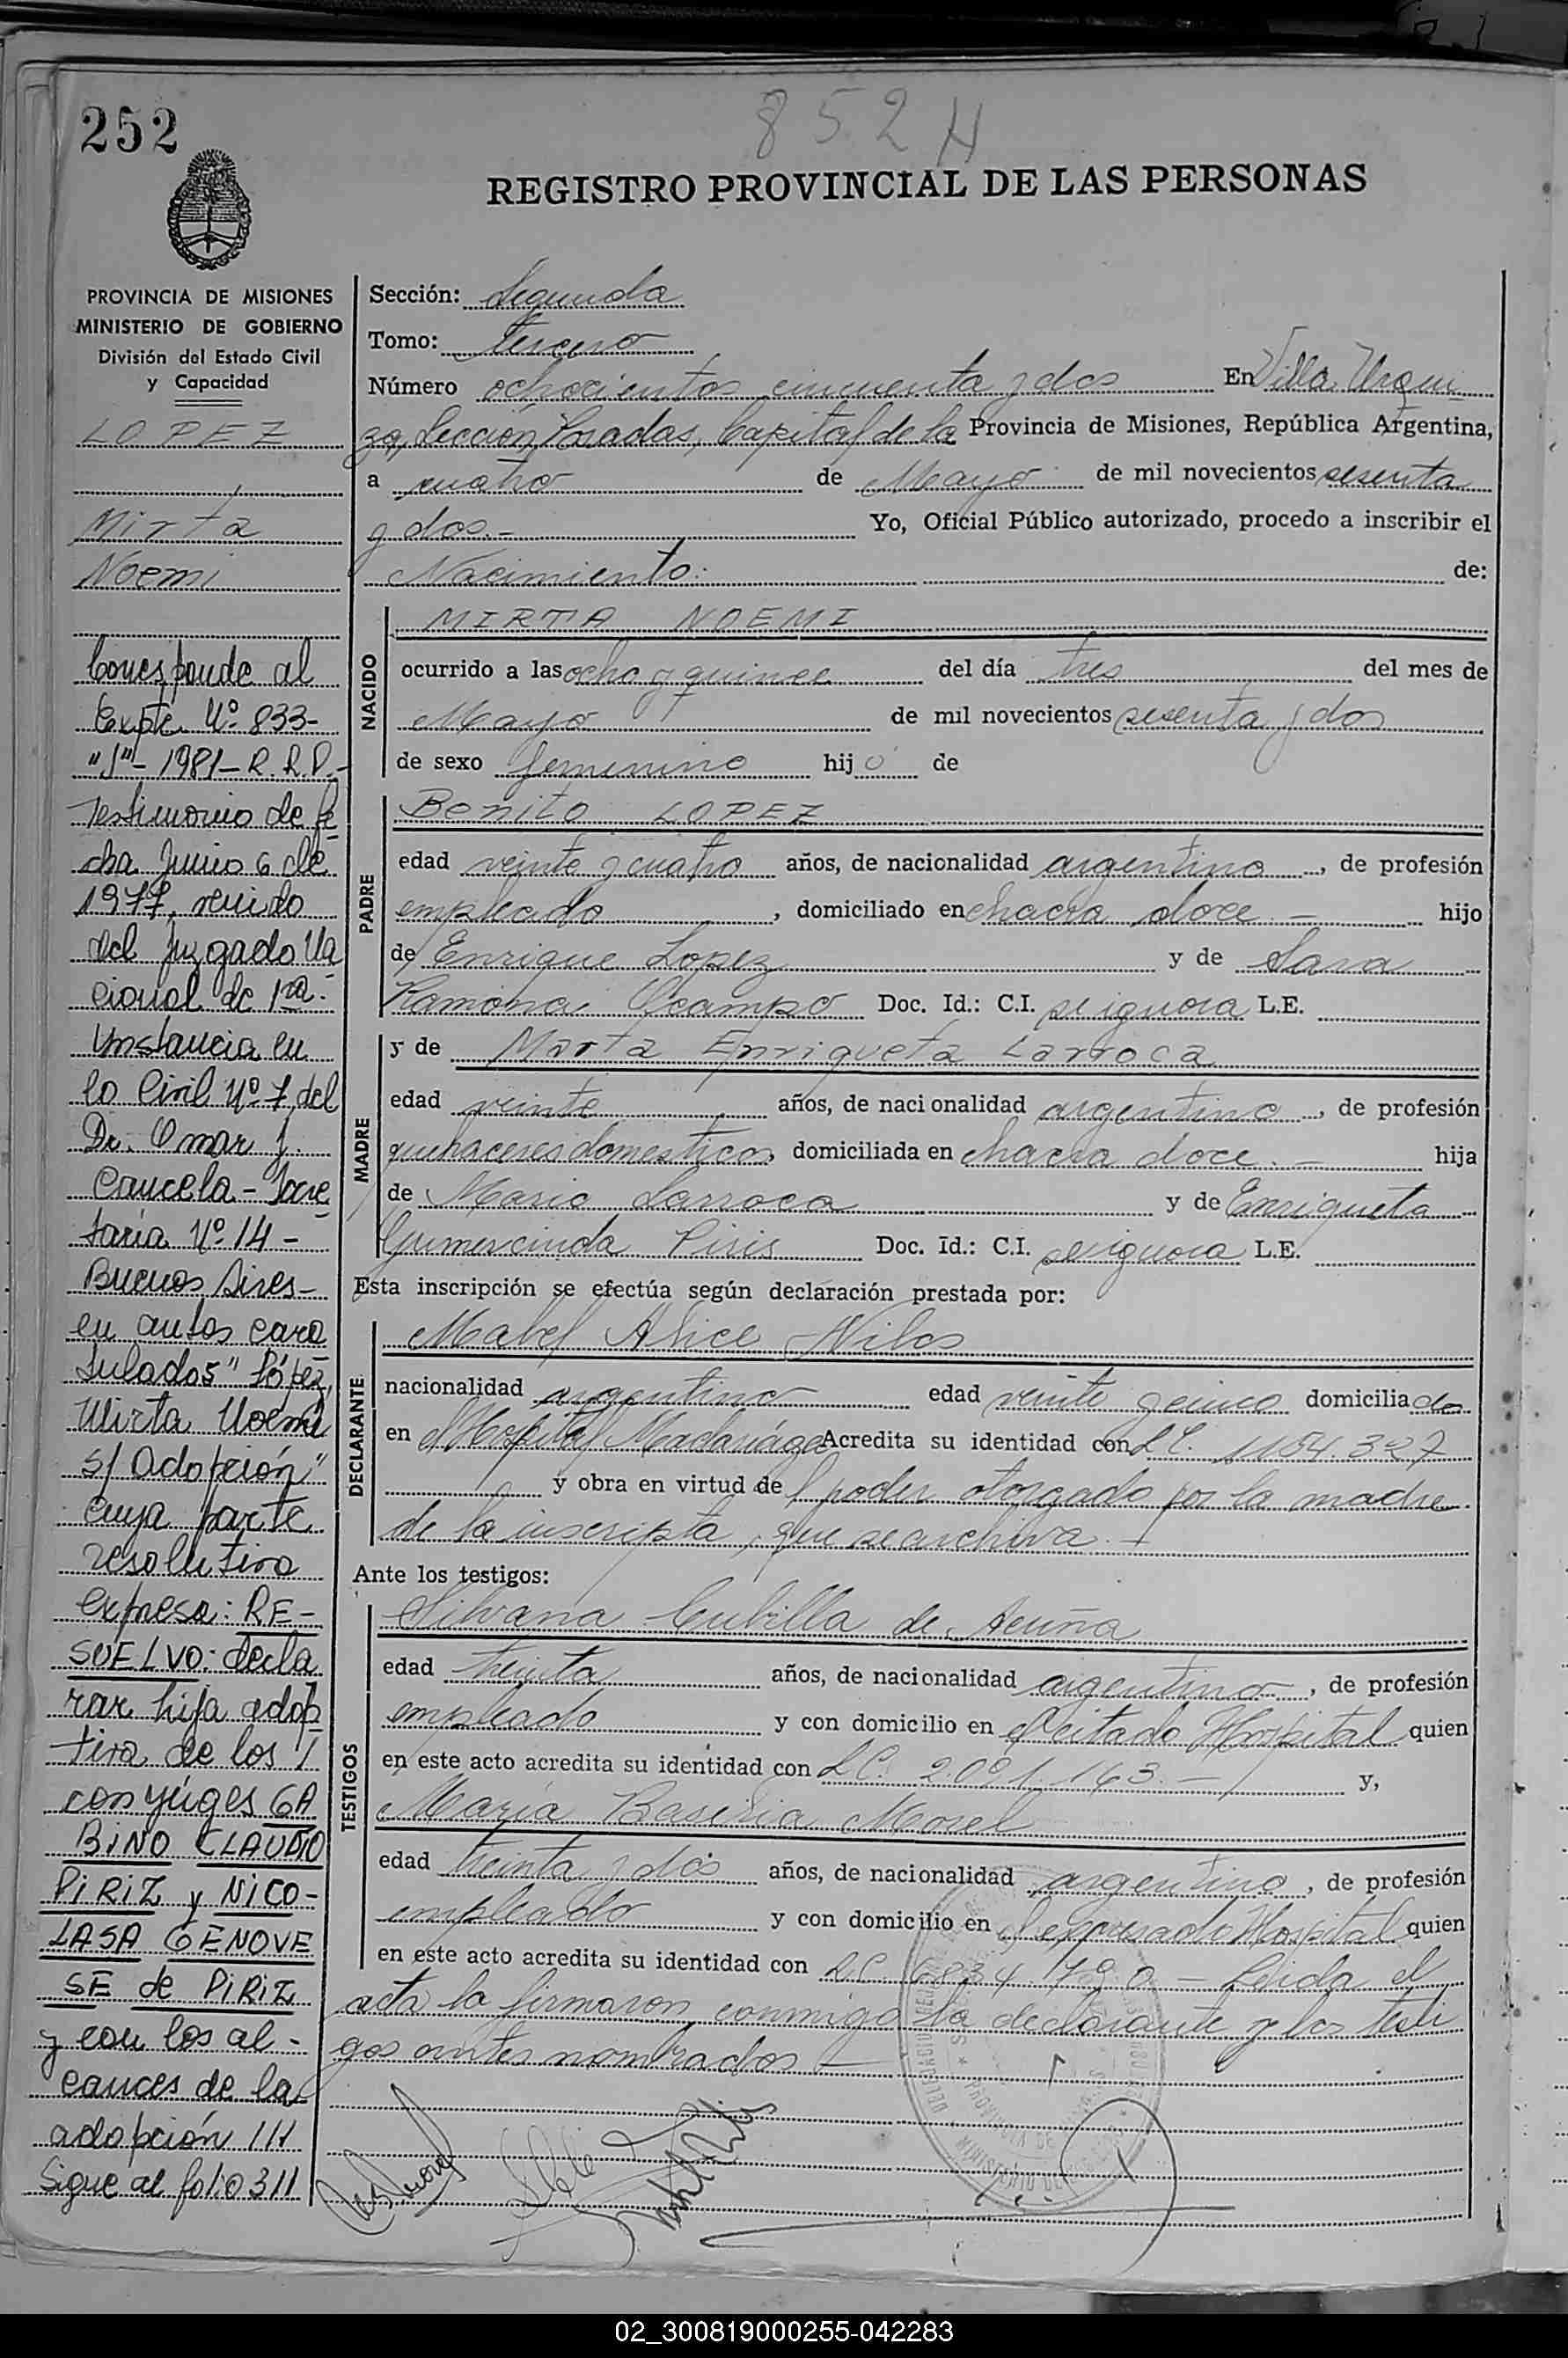 852 H
252
REGISTRO PROVINCIAL DE LAS PERSONAS
PROVINCIA DE MISIONES
MINISTERIO DE GOBIERNO
División del Estado Civil
y Capacidad
LOPEZ
,
Mirta
Noemi
Corresponde al
Expte Nº 833-
"J"- 1981- R.R.P.-
Testimonio de fe
cha Junio 6 de
1977, venido
del Juzgado Na
cional de 1ra.
Instancia en
lo Civil Nº 7, del
Dr. Omar J.
Cancela - Secre
taría Nº 14 -
Buenos Aires -
en autos cara
tulados "López,
Mirta Noemi
s/ Adopción"
cuya parte
resolutiva
expresa: RE-
SUELVO: decla
rar hija adop
tiva de los
conyúges GA
BINO CLAUDIO
PIRIZ y NICO-
LASA GENOVE
SE de PIRIZ
y con los al-
cances de la
adopción ///
Sigue al folio 311
Sección: Segunda
Tomo: Tercero
Número ochocientos cincuenta y dos En Villa Urqui
za, Sección Posadas, Capital de la Provincia de Misiones, República Argentina,
a cuatro de Mayo de mil novecientos sesenta
y dos.- Yo, Oficial Público autorizado, procedo a inscribir el
Nacimiento: de:
NACIDO
MIRTA NOEMI
ocurrido a las ocho y quince del día tres del mes de
Mayo de mil novecientos sesenta y dos
de sexo femenino hijo de
PADRE
Benito LOPEZ
edad veinte y cuatro años, de nacionalidad argentina, de profesión
empleado, domiciliado en chacra doce.- hijo
de Enrique Lopez y de Sara
Ramona Ocampo Doc. Id.: C.I. se ignora L.E.
MADRE
y de Marta Enriqueta Larroca
edad veinte años, de nacionalidad argentina, de profesión
quehaceres domesticos, domiciliada en chacra doce.- hija
de Mario Larroca y de Enriqueta
Gumercinda Piris Doc. Id.: C.I. se ignora L.E.
Esta inscripción se efectúa según declaración prestada por:
DECLARANTE
Mabel Alice
nacionalidad argentina edad veinte y cinco domiciliada
en el Hospital Madariaga Acredita su identidad con L.C. 1.154.327
y obra en virtud del poder otorgado por la madre
de la inscripta, que se archiva.-
Ante los testigos:
TESTIGOS
Silvana Cubilla de Acuña
edad treinta años, de nacionalidad argentina, de profesión
empleado y con domicilio en el citado Hospital quien
en este acto acredita su identidad con L.C. 2.091.163.- y,
María Morel
edad treinta y dos años, de nacionalidad argentino, de profesión
empleado y con domicilio en el expresado Hospital quien
en este acto acredita su identidad con L.C. 6834.790 - Leida el
acta la firmaron conmigo la declarante y los testi
gos antes nombrados -
02_300819000255-042283